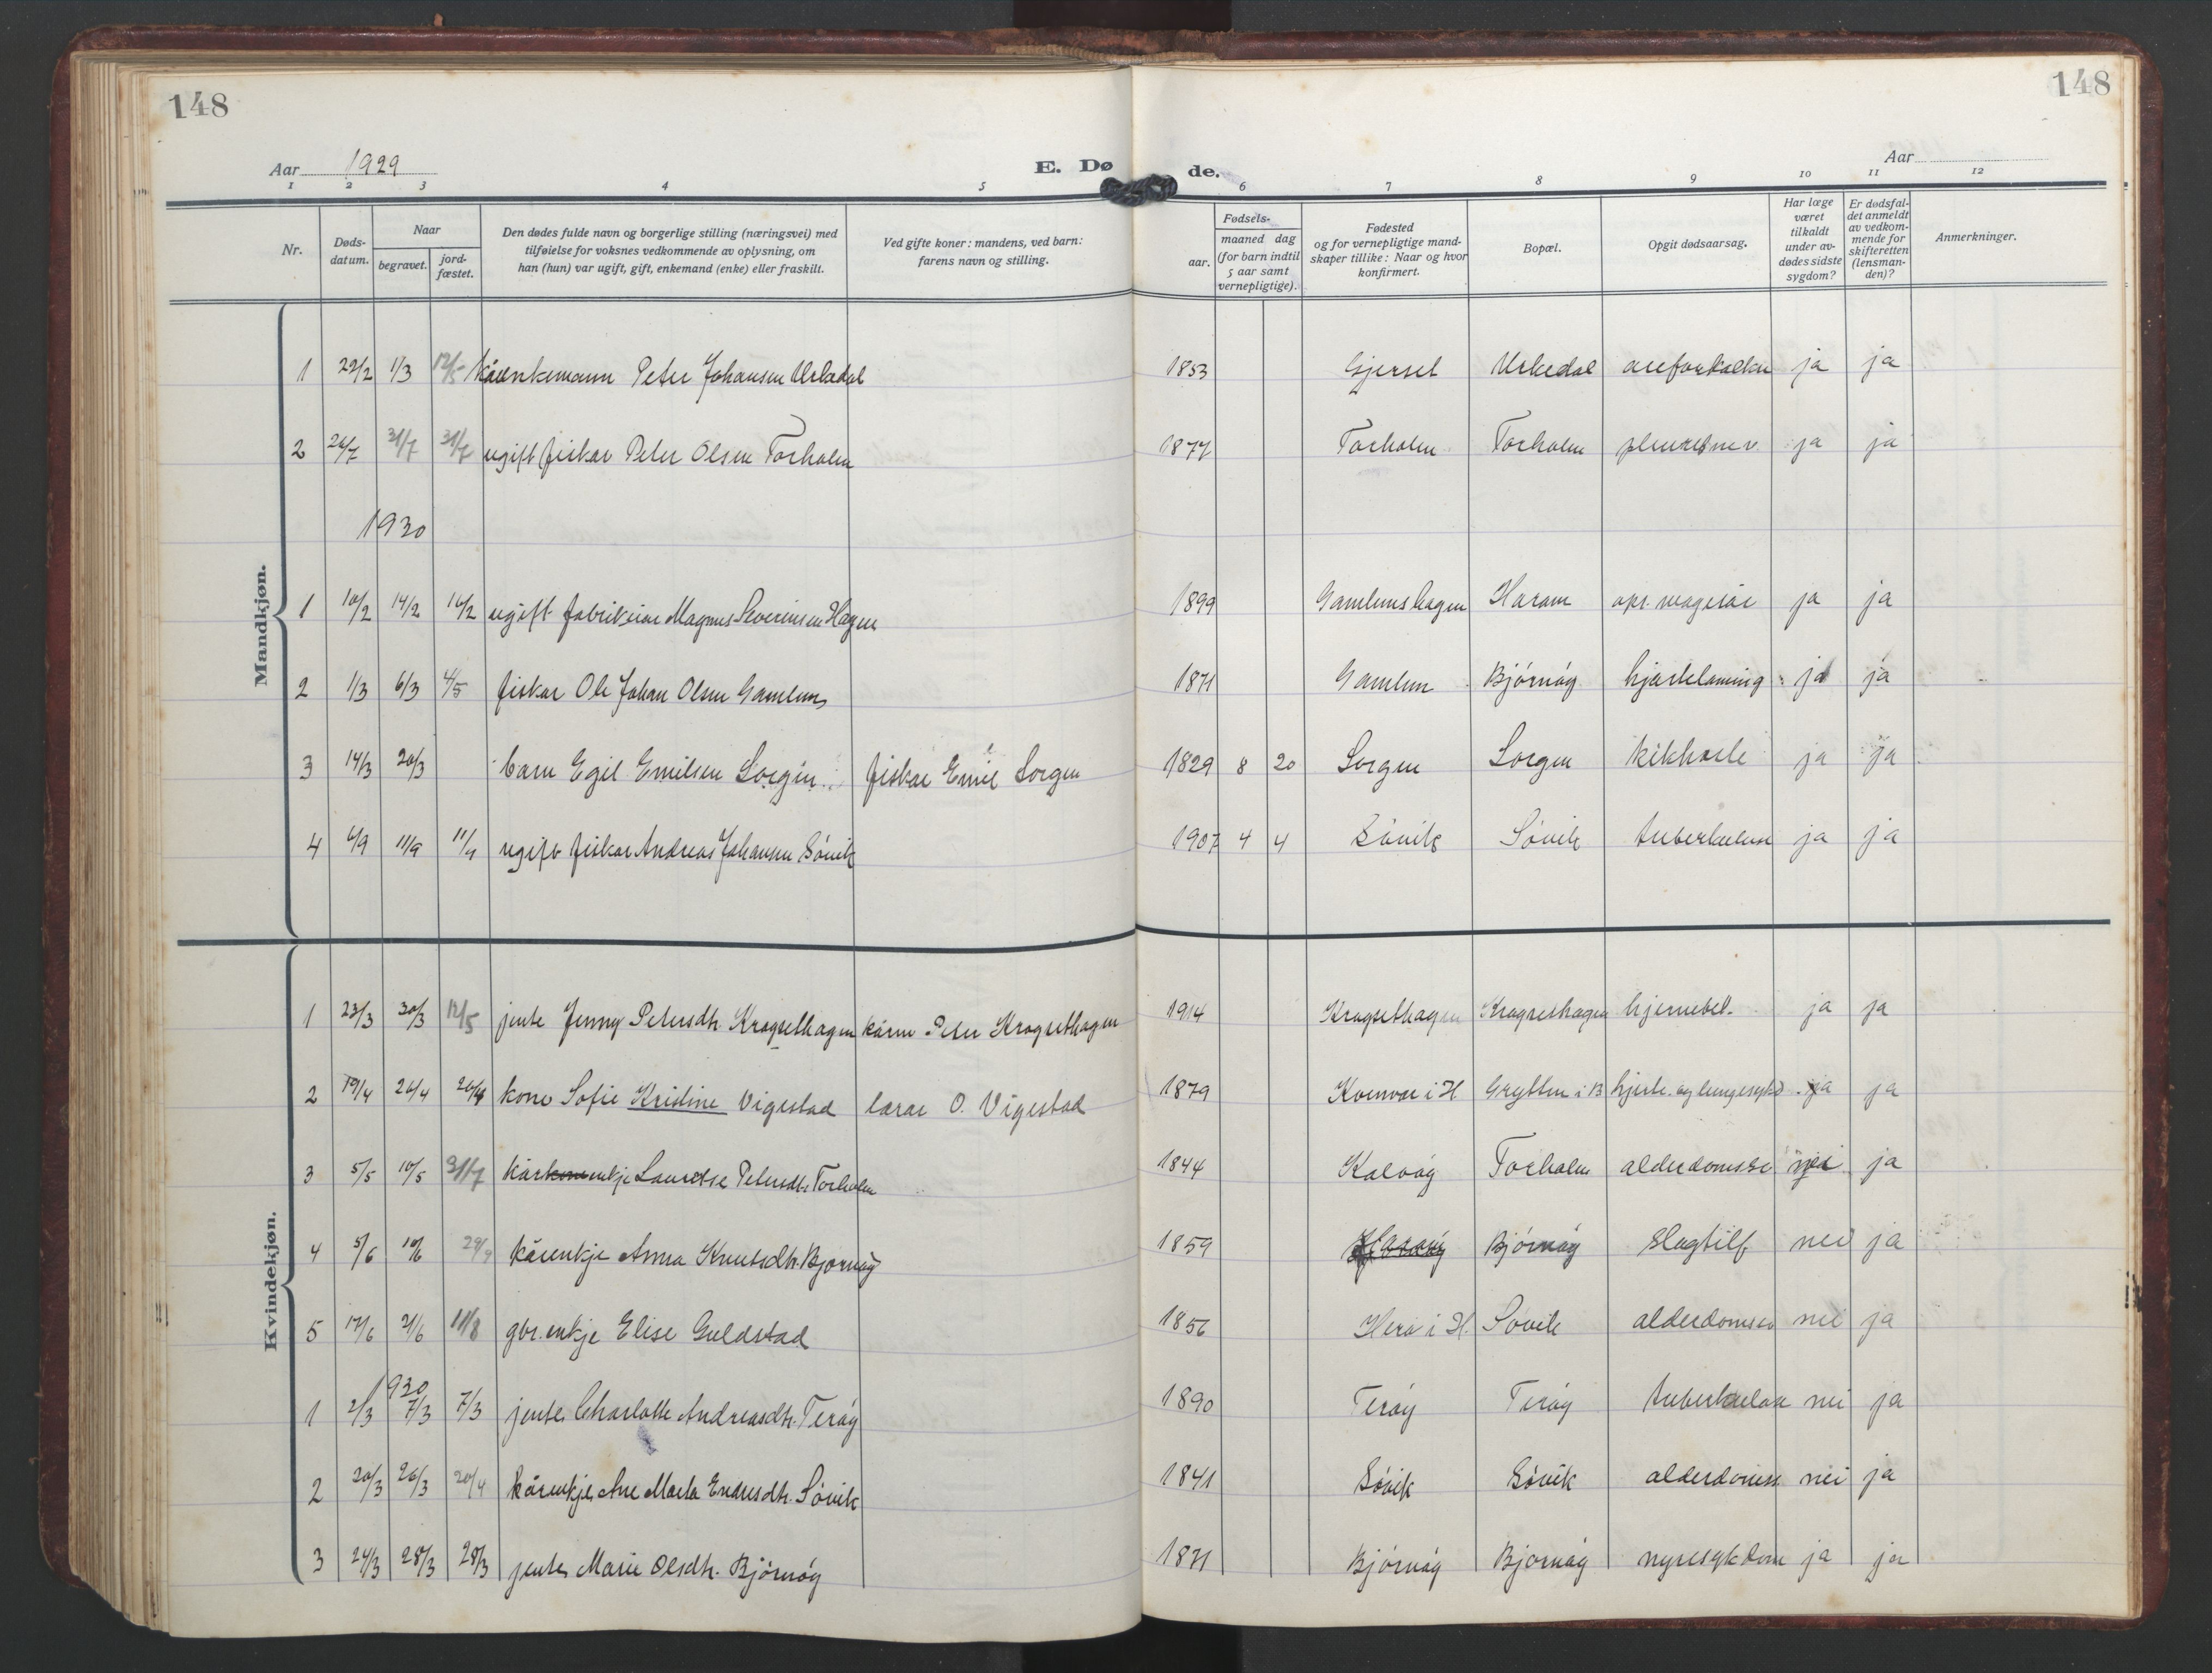 148
148
Aar 1929
E. Døde.
Aar
1 2 3 4 5 6 7 8 9 10 11 12
Nr.
Døds-
datum.
Naar
begravet.
jord-
fæstet.
Den dødes fulde navn og borgerlige stilling (næringsvei) med
tilføielse for voksnes vedkommende av oplysning, om
han (hun) var ugift, gift, enkemand (enke) eller fraskilt.
Ved gifte koner: mandens, ved barn:
farens navn og stilling.
Fødsels-
aar.
maaned dag
(for barn indtil
5 aar samt
vernepligtige).
Fødested
og for vernepligtige mand-
skaper tillike: Naar og hvor
konfirmert.
Bopæl.
Opgit dødsaarsag.
Har læge
været
tilkaldt
under av-
dødes sidste
sygdom?
Er dødsfal-
det anmeldt
av vedkom-
mende for
skifteretten
(lensman-
den)?
Anmerkninger.
Mandkjøn.
1 1/3 12/5 kårenkemann Peter Johansen Urkedal 1853 Gjerset Urkedal areforkalkn ja ja
2 31/7 31/7 ugift fiskar Peter Olsen Torholm Torholm Torholm ja ja
1930
1 10/2 14/2 ugift fabrikeiar Magnus Severinsen Hagen 1899 Gamlemshagen Haram opr. magesår ja ja
2 1/3 6/3 4/5 fiskar Ole Johan Olsen Gamlem 1871 Gamlem Bjørnøy hjartelaming ja ja
3 14/3 20/3 barn Egil Emilsen Sorgen fiskar Emil Sorgen 1829 8 20 Sorgen Sorgen kikhoste ja ja
4 6/9 11/9 11/9 ugift fiskar Andreas Johansen Søvik 1907 4 4 Søvik Søvik tuberkulose ja ja
Kvindekjøn.
1 23/3 30/3 12/5 jente Jenny Petersdtr. Krogsethagen kårm Peter Krogsethagen 1914 Krogsethagen Krogsethagen hjernebet. ja ja
2 19/4 26/4 26/4 kone Sofie Kristine Vigestad lærar O. Vigestad 1879 i H Grytten i B hjerte- og lungesykd. ja ja
3 5/5 10/5 31/7 kårkone enkje Lauretse Petersdtr. Torholm 1844 Kalvåg Torholm alderdomssv nei ja
4 5/6 10/6 29/9 kårenkje Anna Knutsdtr. Bjørnøy 1859 Bjørnøy Slagtilf nei ja
5 17/6 21/6 11/8 gbr. enkje Elise Guldstad 1856 i H. Søvik alderdomssv nei ja
1930
1 2/3 7/3 7/3 jente Charlotte Andreasdtr. Terøy 1890 Terøy Terøy tuberkulose nei ja
2 20/3 26/3 20/4 kårenkje Ane Marta Endresdtr. Søvik 1841 Søvik Søvik alderdomss. nei ja
3 24/3 28/3 28/3 jente Marie Olsdtr. Bjørnøy 1871 Bjørnøy Bjørnøy nyresykdom ja ja